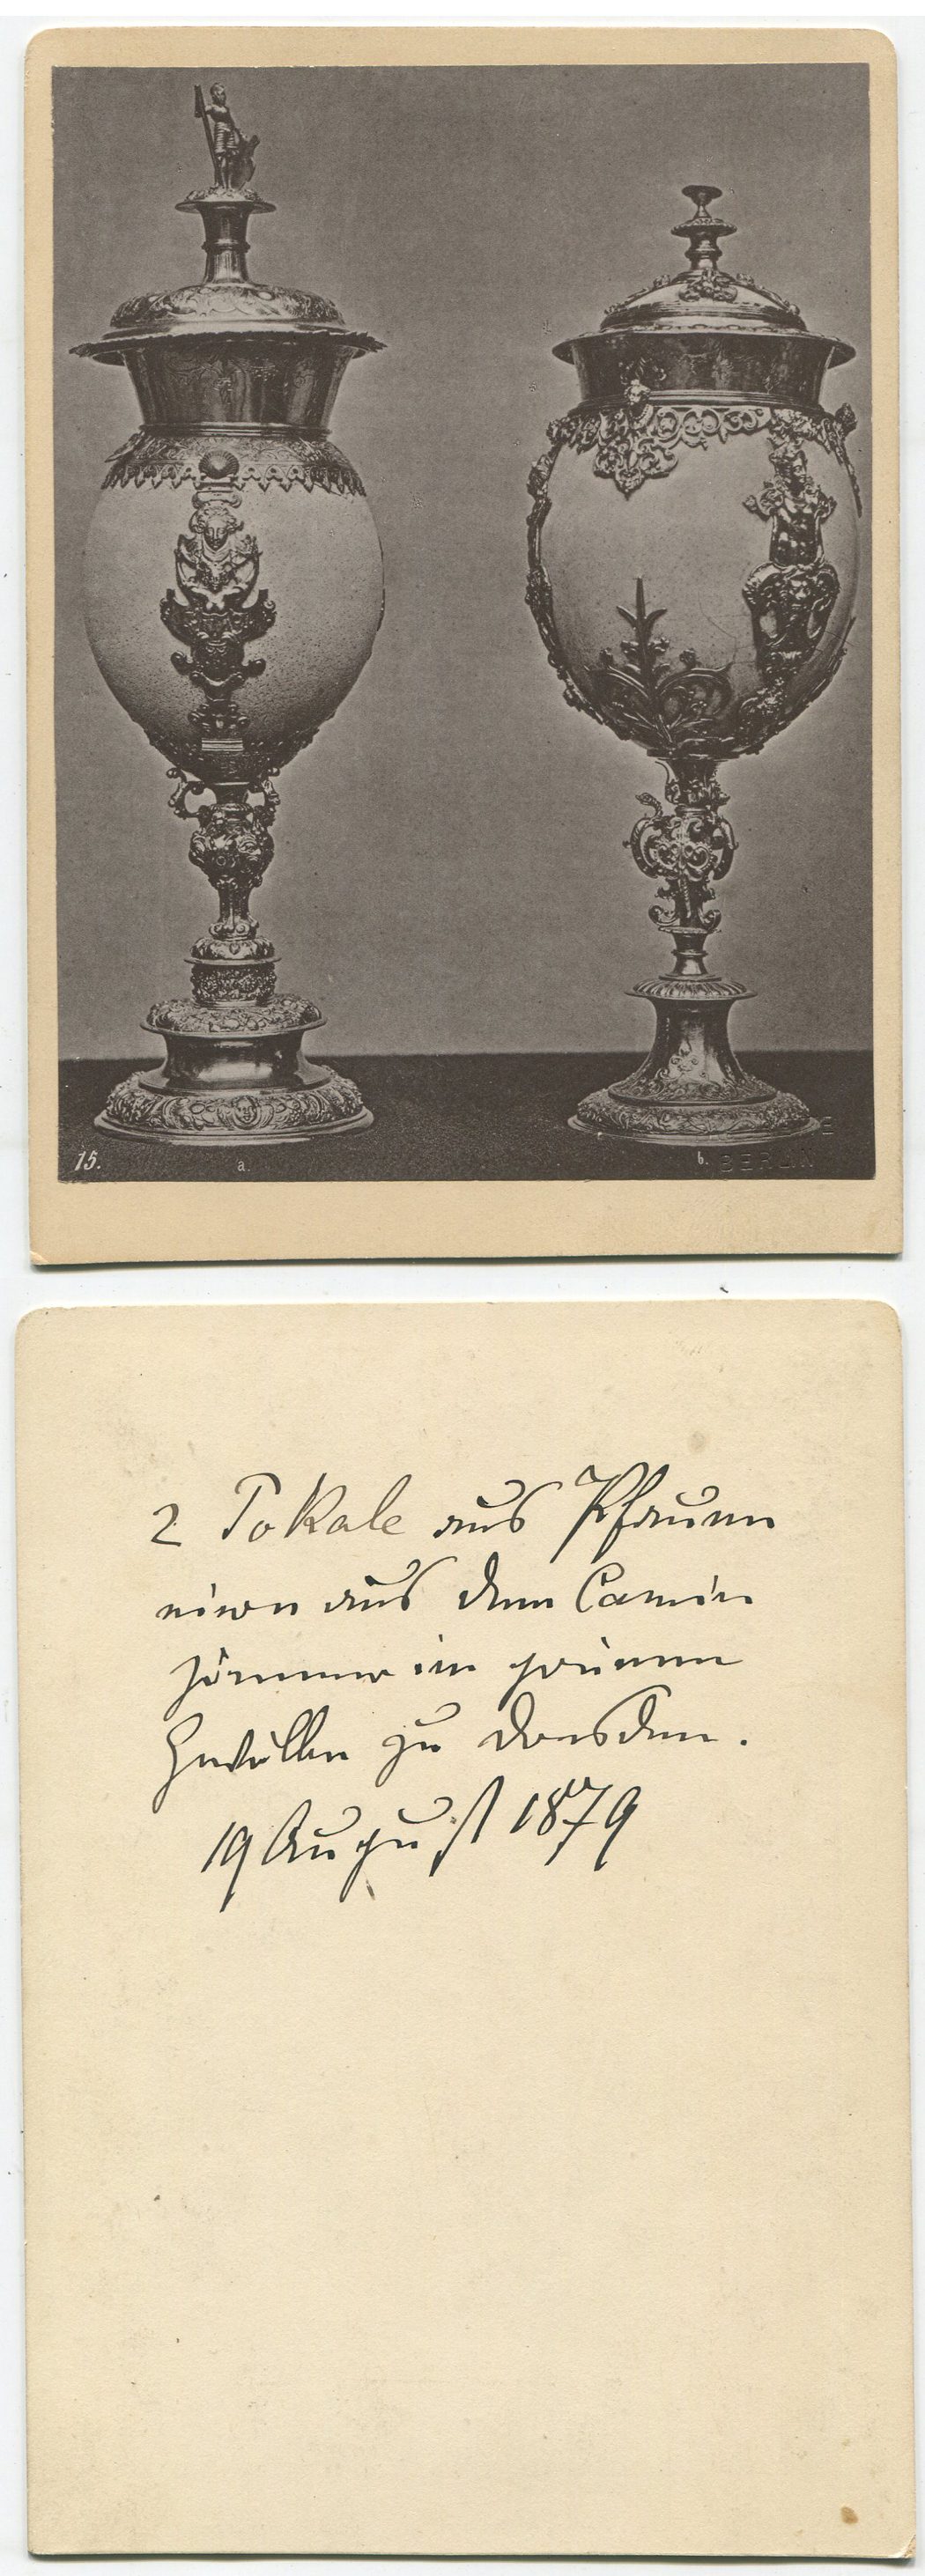 15.
a.
b.
E
BERLIN
2 Pokale aus Pfauen
eiern aus dem Camin
zimmer im grünen
Gewölbe zu Dresden.
19 August 1879